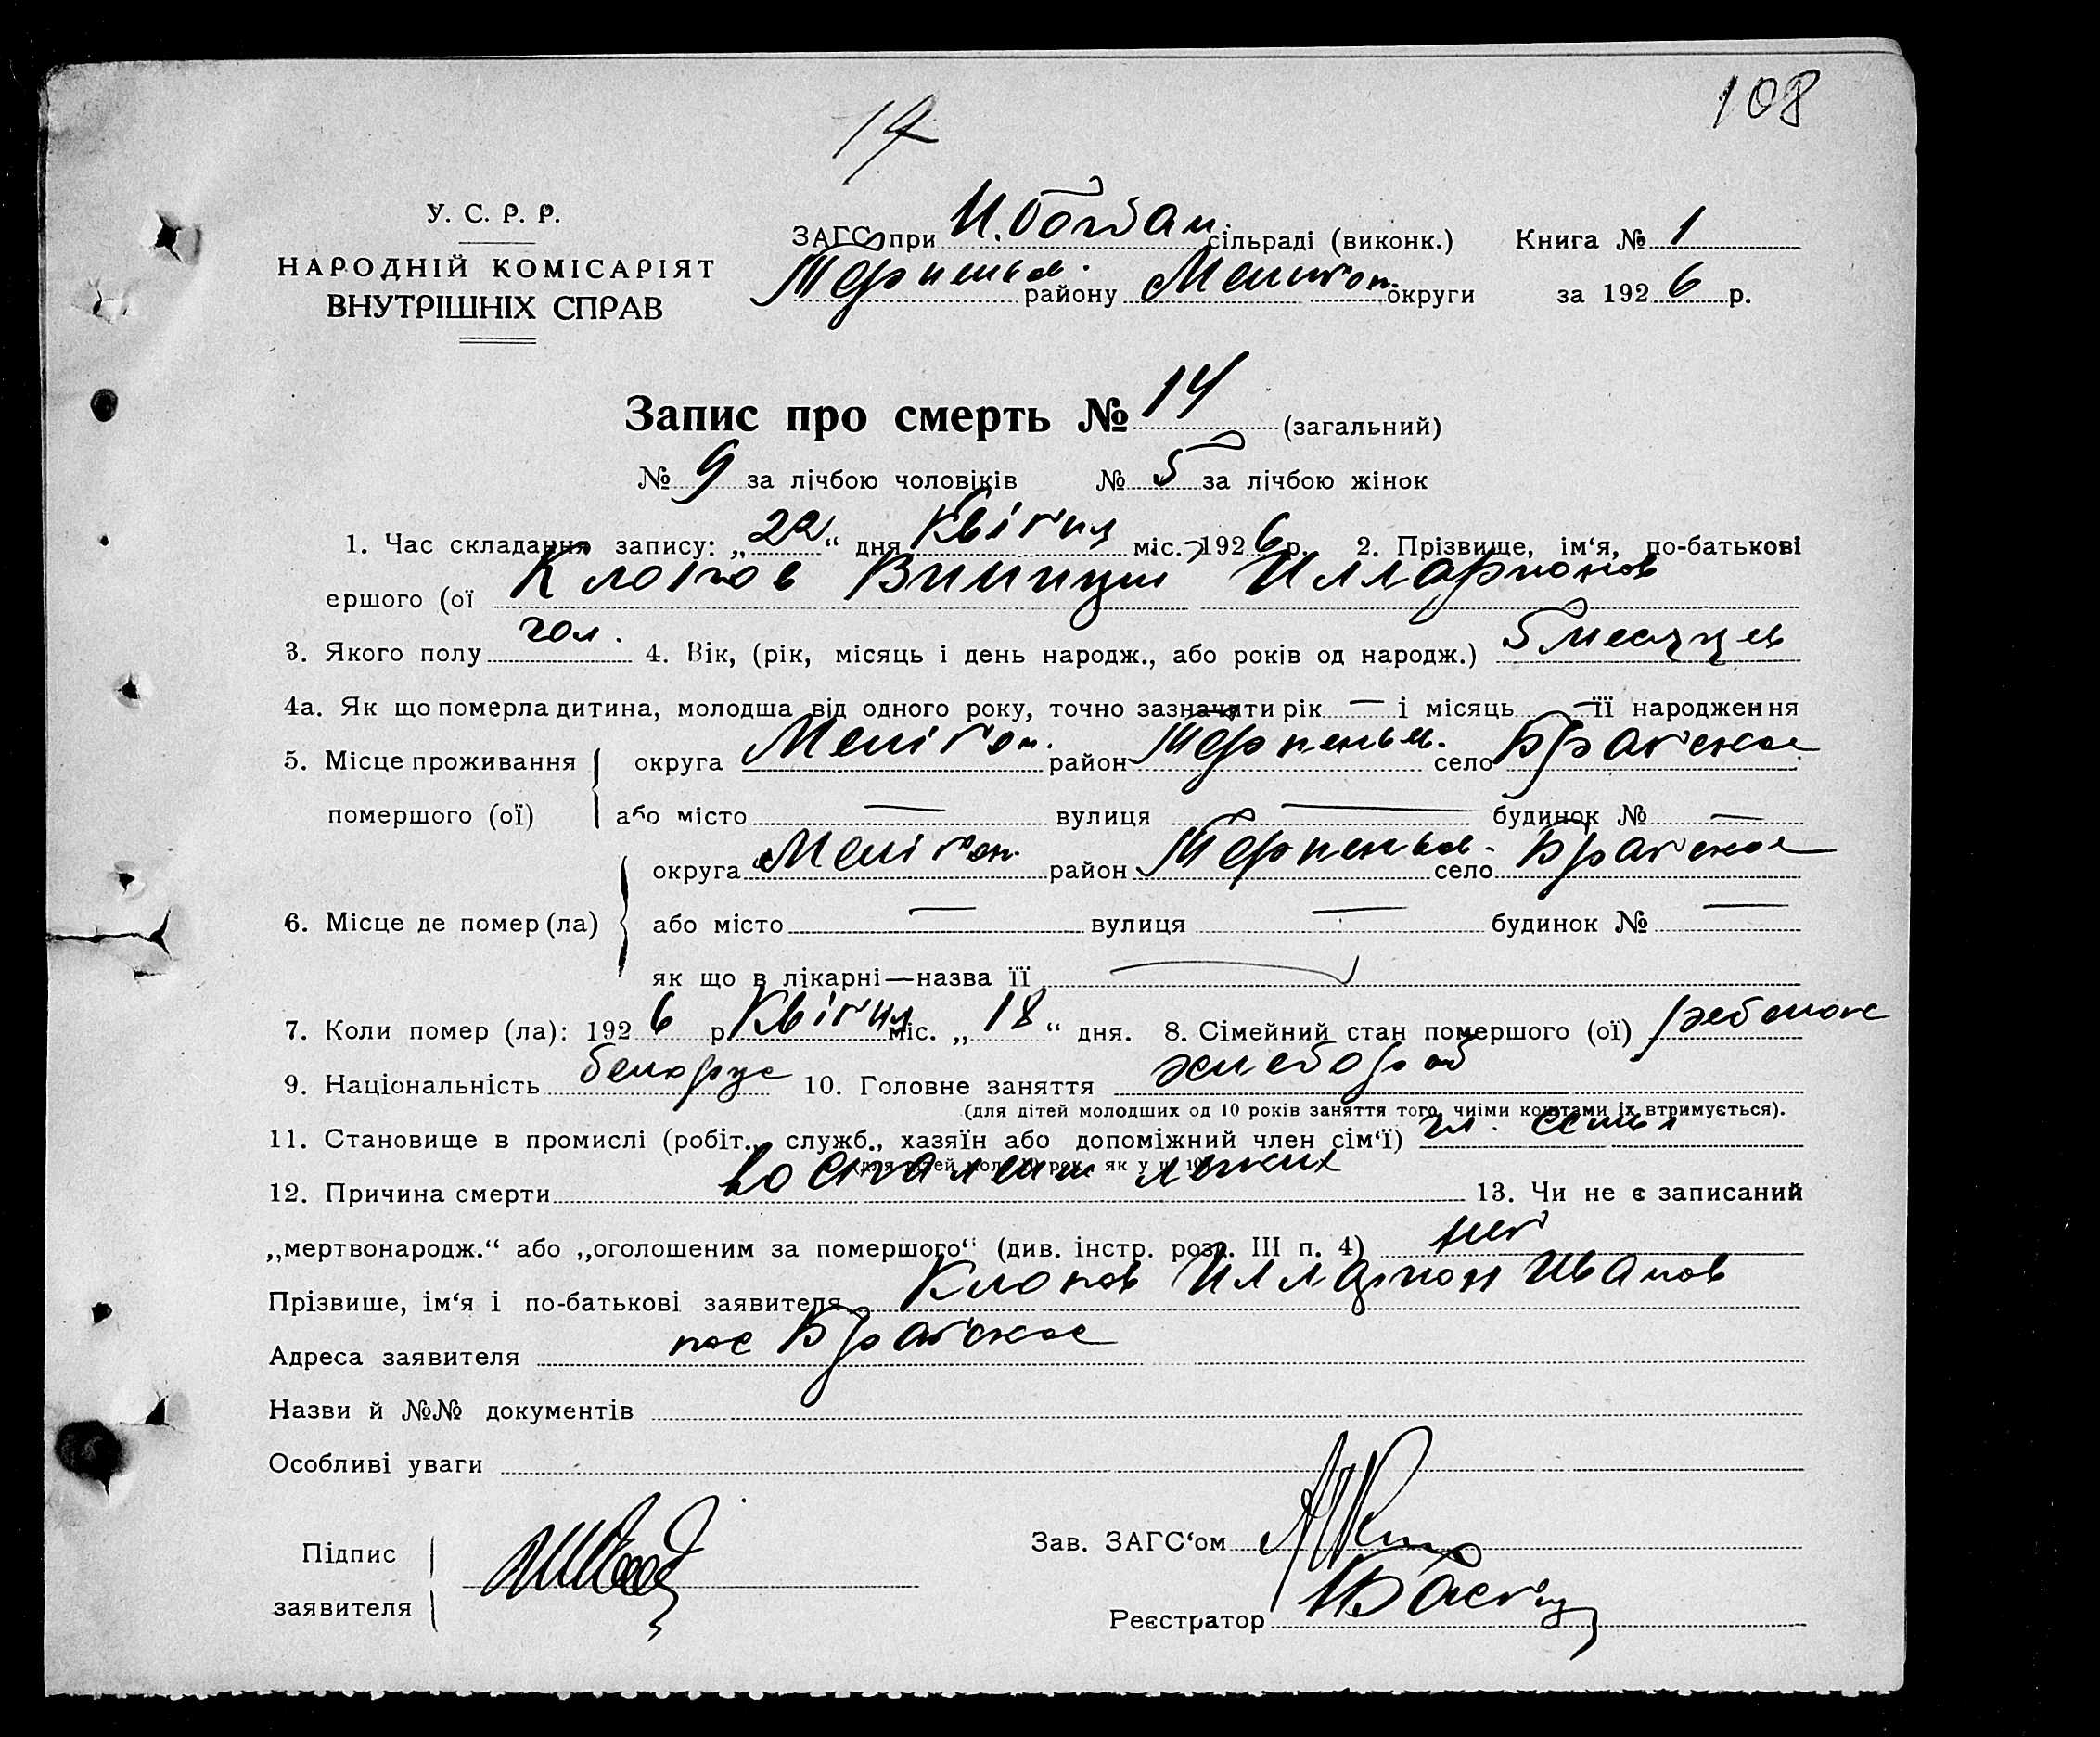 108
14
У. С. Р. Р.
НАРОДНІЙ КОМІСАРІЯТ
ВНУТРІШНІХ СПРАВ
ЗАГС при Н. Богдан. сільраді (виконк.) Книга № 1
Терпеньев. району Меліт'оп. округи за 1926 р.
Запис про смерть № 14 (загальний)
№ 9 за лічбою чоловіків № 5 за лічбою жінок
1. Час складання запису: „22“ дня Квітня міс. 1926 р. 2. Прізвище, ім‘я, по-батькові
ершого (ої Клопов Илларионов
3. Якого полу чол. 4. Вік, (рік, місяць і день народж., або років од народж.) 5 месяцев
4а. Як що померла дитина, молодша від одного року, точно зазначити рік — і місяць — її народження
5. Місце проживання округа Меліт'оп. район Терпеньев. село Брат'ское
помершого (ої) або місто — вулиця — будинок № —
округа Меліт'оп. район Терпеньев. село Брат'ское
6. Місце де помер (ла) або місто — вулиця — будинок № —
як що в лікарні—назва її —
7. Коли помер (ла): 1926 р. Квітня міс. „18“ дня. 8. Сімейний стан помершого (ої) ребенок
9. Національність белорус 10. Головне заняття хлебороб
(для дітей молодших од 10 років заняття того, чиїми коштами їх втримується).
11. Становище в промислі (робіт., служб., хазяїн або допоміжний член сім‘ї) чл. семьи
12. Причина смерти воспаление легких 13. Чи не є записаний
„мертвонародж.“ або „оголошеним за помершого“ (див. інстр. розд. III п. 4) нет
Прізвище, ім‘я і по-батькові заявителя Клопов Илларион Иванов
Адреса заявителя пос Брат'ское
Назви й №№ документів
Особливі уваги
Підпис
заявителя
Зав. ЗАГС‘ом
Реєстратор